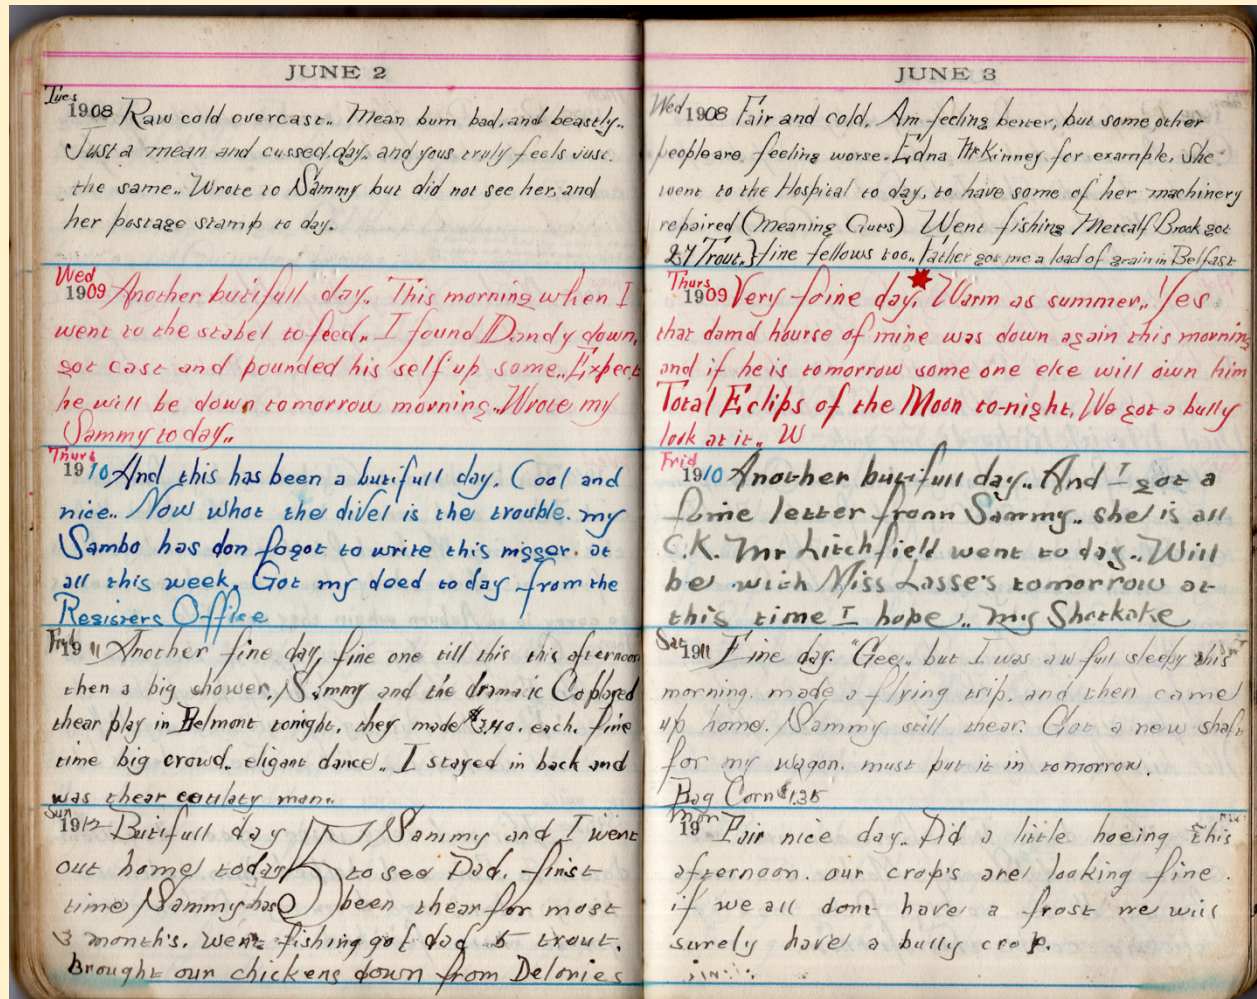 JUNE 2
Tues
1908 Raw cold overcast.. Mean bum bad, and beastly..
Just a mean and cussed day. and yous truly feels just.
the same.. Wrote to Sammy but did not see her, and
her postage stamp to day.
Wed
1909 Another butifull day.. This morning when I
went to the stabel to feed.. I found Dandy down,
got cast and pounded his self up some.. Expect
he will be down tomorrow morning.. Wrote my
Sammy to day..
Thurs
1910 And this has been a butifull day. Cool and
nice.. Now whot the divel is the trouble. my
Sambo has don fogot to write this nigger. at
all this week. Got my deed to day from the
Registers Office
Frid
1911 Another fine day, fine one till this this afternoon
then a big shower. Sammy and the dramaic Co played
thear play in Belmont tonight. they made $3.40. each. fine
time big crowd.. eligant dance.. I stayed in back and
was thear man..
Sun
1912 Butifull day Sammy and I went
out home today to see Dad. first
time Sammy has been thear for most
3 month's. went fishing got dad 5 trout.
Brought our chickens down from Delonies
JUNE 3
Wed
1908 Fair and cold. Am feeling better, but some other
people are feeling worse. Edna McKinney for example. She
went to the Hospital to day, to have some of her machinery
repaired (Meaning Guts) Went fishing Metcalf Brook got
27 Trout. } fine fellows too.. Father got me a load of grain in Belfast
Thurs
1909 Very foine day. Warm as summer.. Yes
that damd hourse of mine was down again this morning
and if he is tomorrow some one elce will own him
Total Eclips of the Moon to-night. We got a bully
look at it.. W
Frid
1910 Another butifull day.. And I got a
foine letter from Sammy.. she is all
O.K. Mr Litchfield went to day.. Will
be with Miss Lasse's tomorrow at
this time I hope.. my Shotkake
Sat
1911 Fine day. "Gee.. but I was awfull sleepy this
morning. made a flying trip. and then came
up home. Sammy still thear. Got a new shaft
for my wagon. must put it in tomorrow.
Bag Corn $1.35
Mon
19 Fair nice day.. Did a little hoeing this
afternoon. our crop's are looking fine.
if we all dont have a frost we will
surely have a bully crop.